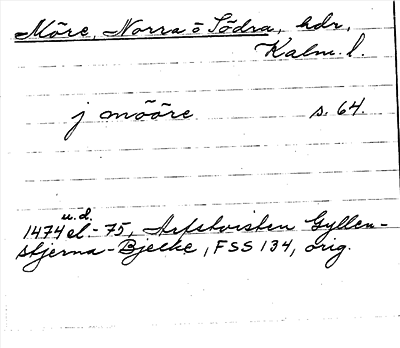 Möre, Norra o Södra, hdr,
Kalm. l.
j mööre s. 64.
u.d.
1474 el. - 75, Arfstvisten Gyllen-
stjerna - Bjelke, FSS 134, orig.